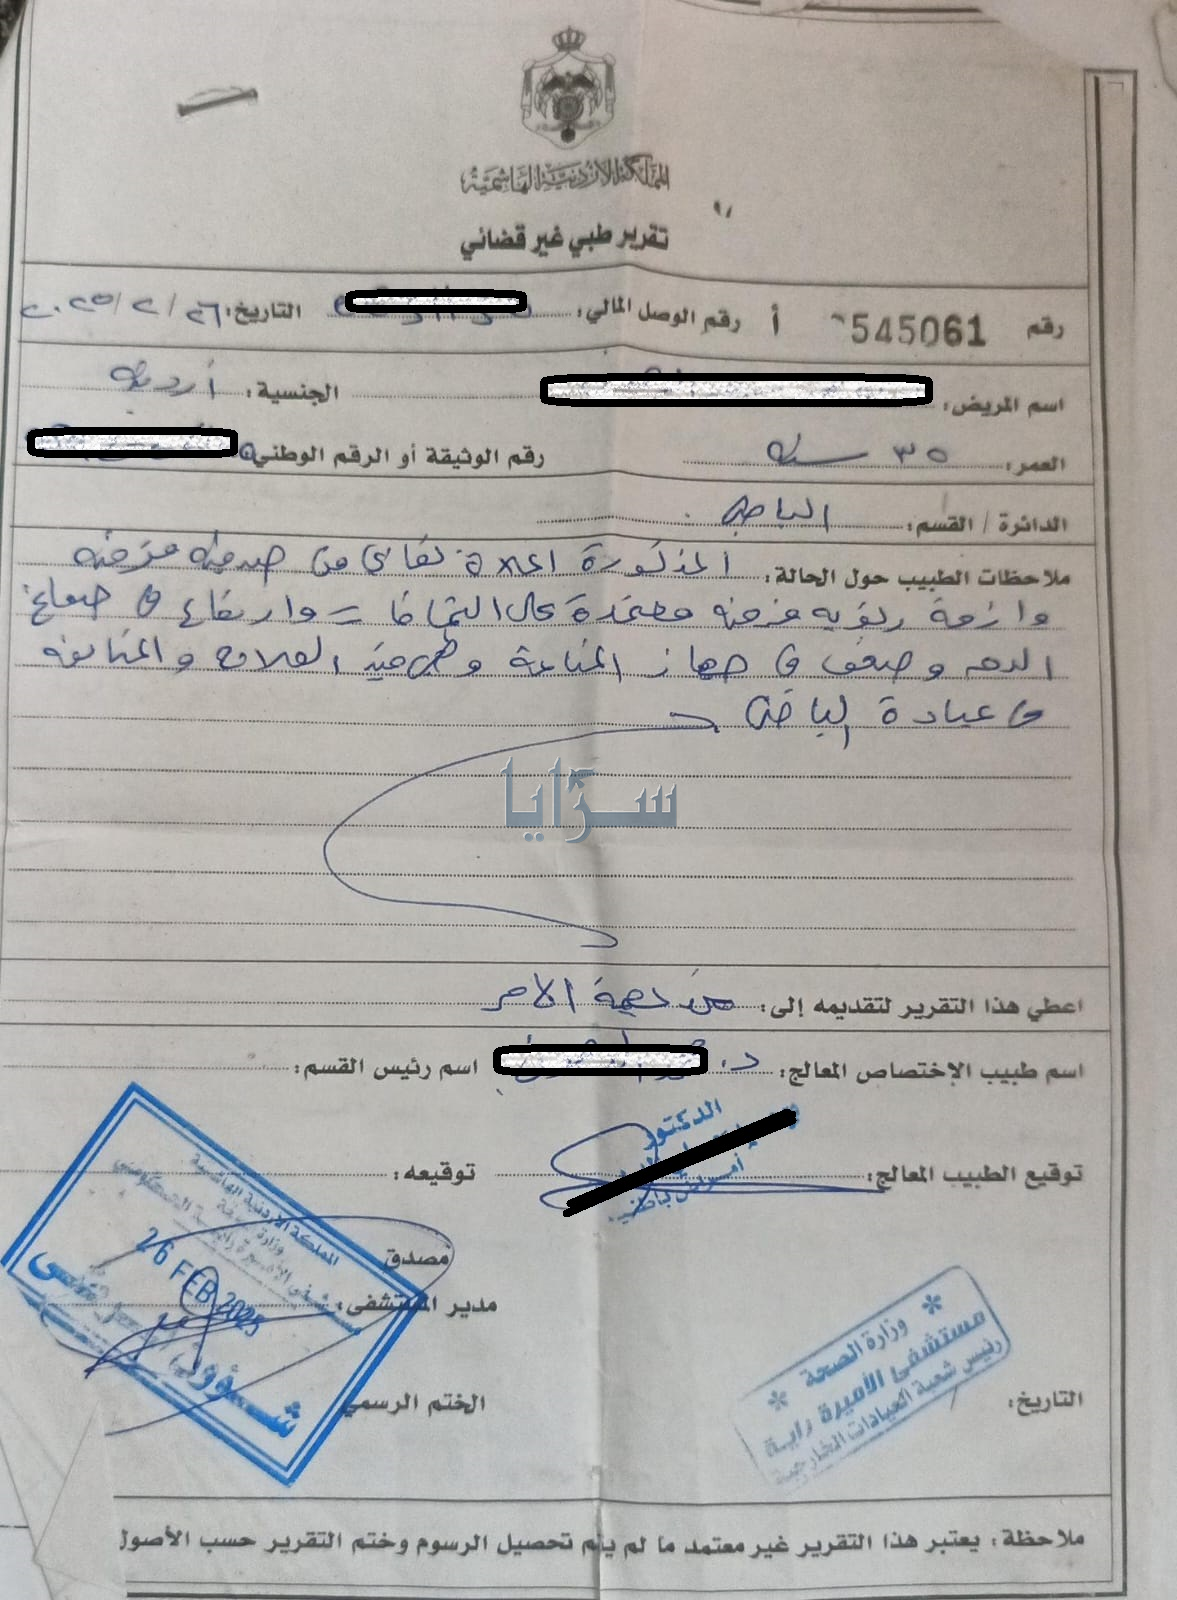 المملكة الأردنية الهاشمية
تقرير طبي غير قضائي
رقم 545061 أ رقم الوصل المالي: التاريخ: ٢٦/٢/٢٠٢٥
اسم المريض: الجنسية: أردنية
العمر: ٣٥ سنة رقم الوثيقة أو الرقم الوطني
الدائرة / القسم: الباطني
ملاحظات الطبيب حول الحالة: المذكورة اعلاه تعاني من مزمنه
وازمة رئويه مزمنه معتمدة على البخاخات وارتفاع في ضغط
الدم وضعف في جهاز المناعة وهي قيد العلاج والمتابعه
في عيادة الباطني
سرايا
اعطي هذا التقرير لتقديمه إلى: من يهمه الامر
اسم طبيب الإختصاص المعالج: د. اسم رئيس القسم:
الدكتور
أمراض باطنية
توقيع الطبيب المعالج: توقيعه:
مصدق
مدير المستشفى:
المملكة الأردنية الهاشمية
وزارة الصحة
26 FEB 2025
شؤون المرضى
الختم الرسمي
التاريخ:
وزارة الصحة
مستشفى الأميرة راية
رئيس شعبة العيادات الخارجية
ملاحظة: يعتبر هذا التقرير غير معتمد ما لم يتم تحصيل الرسوم وختم التقرير حسب الأصول